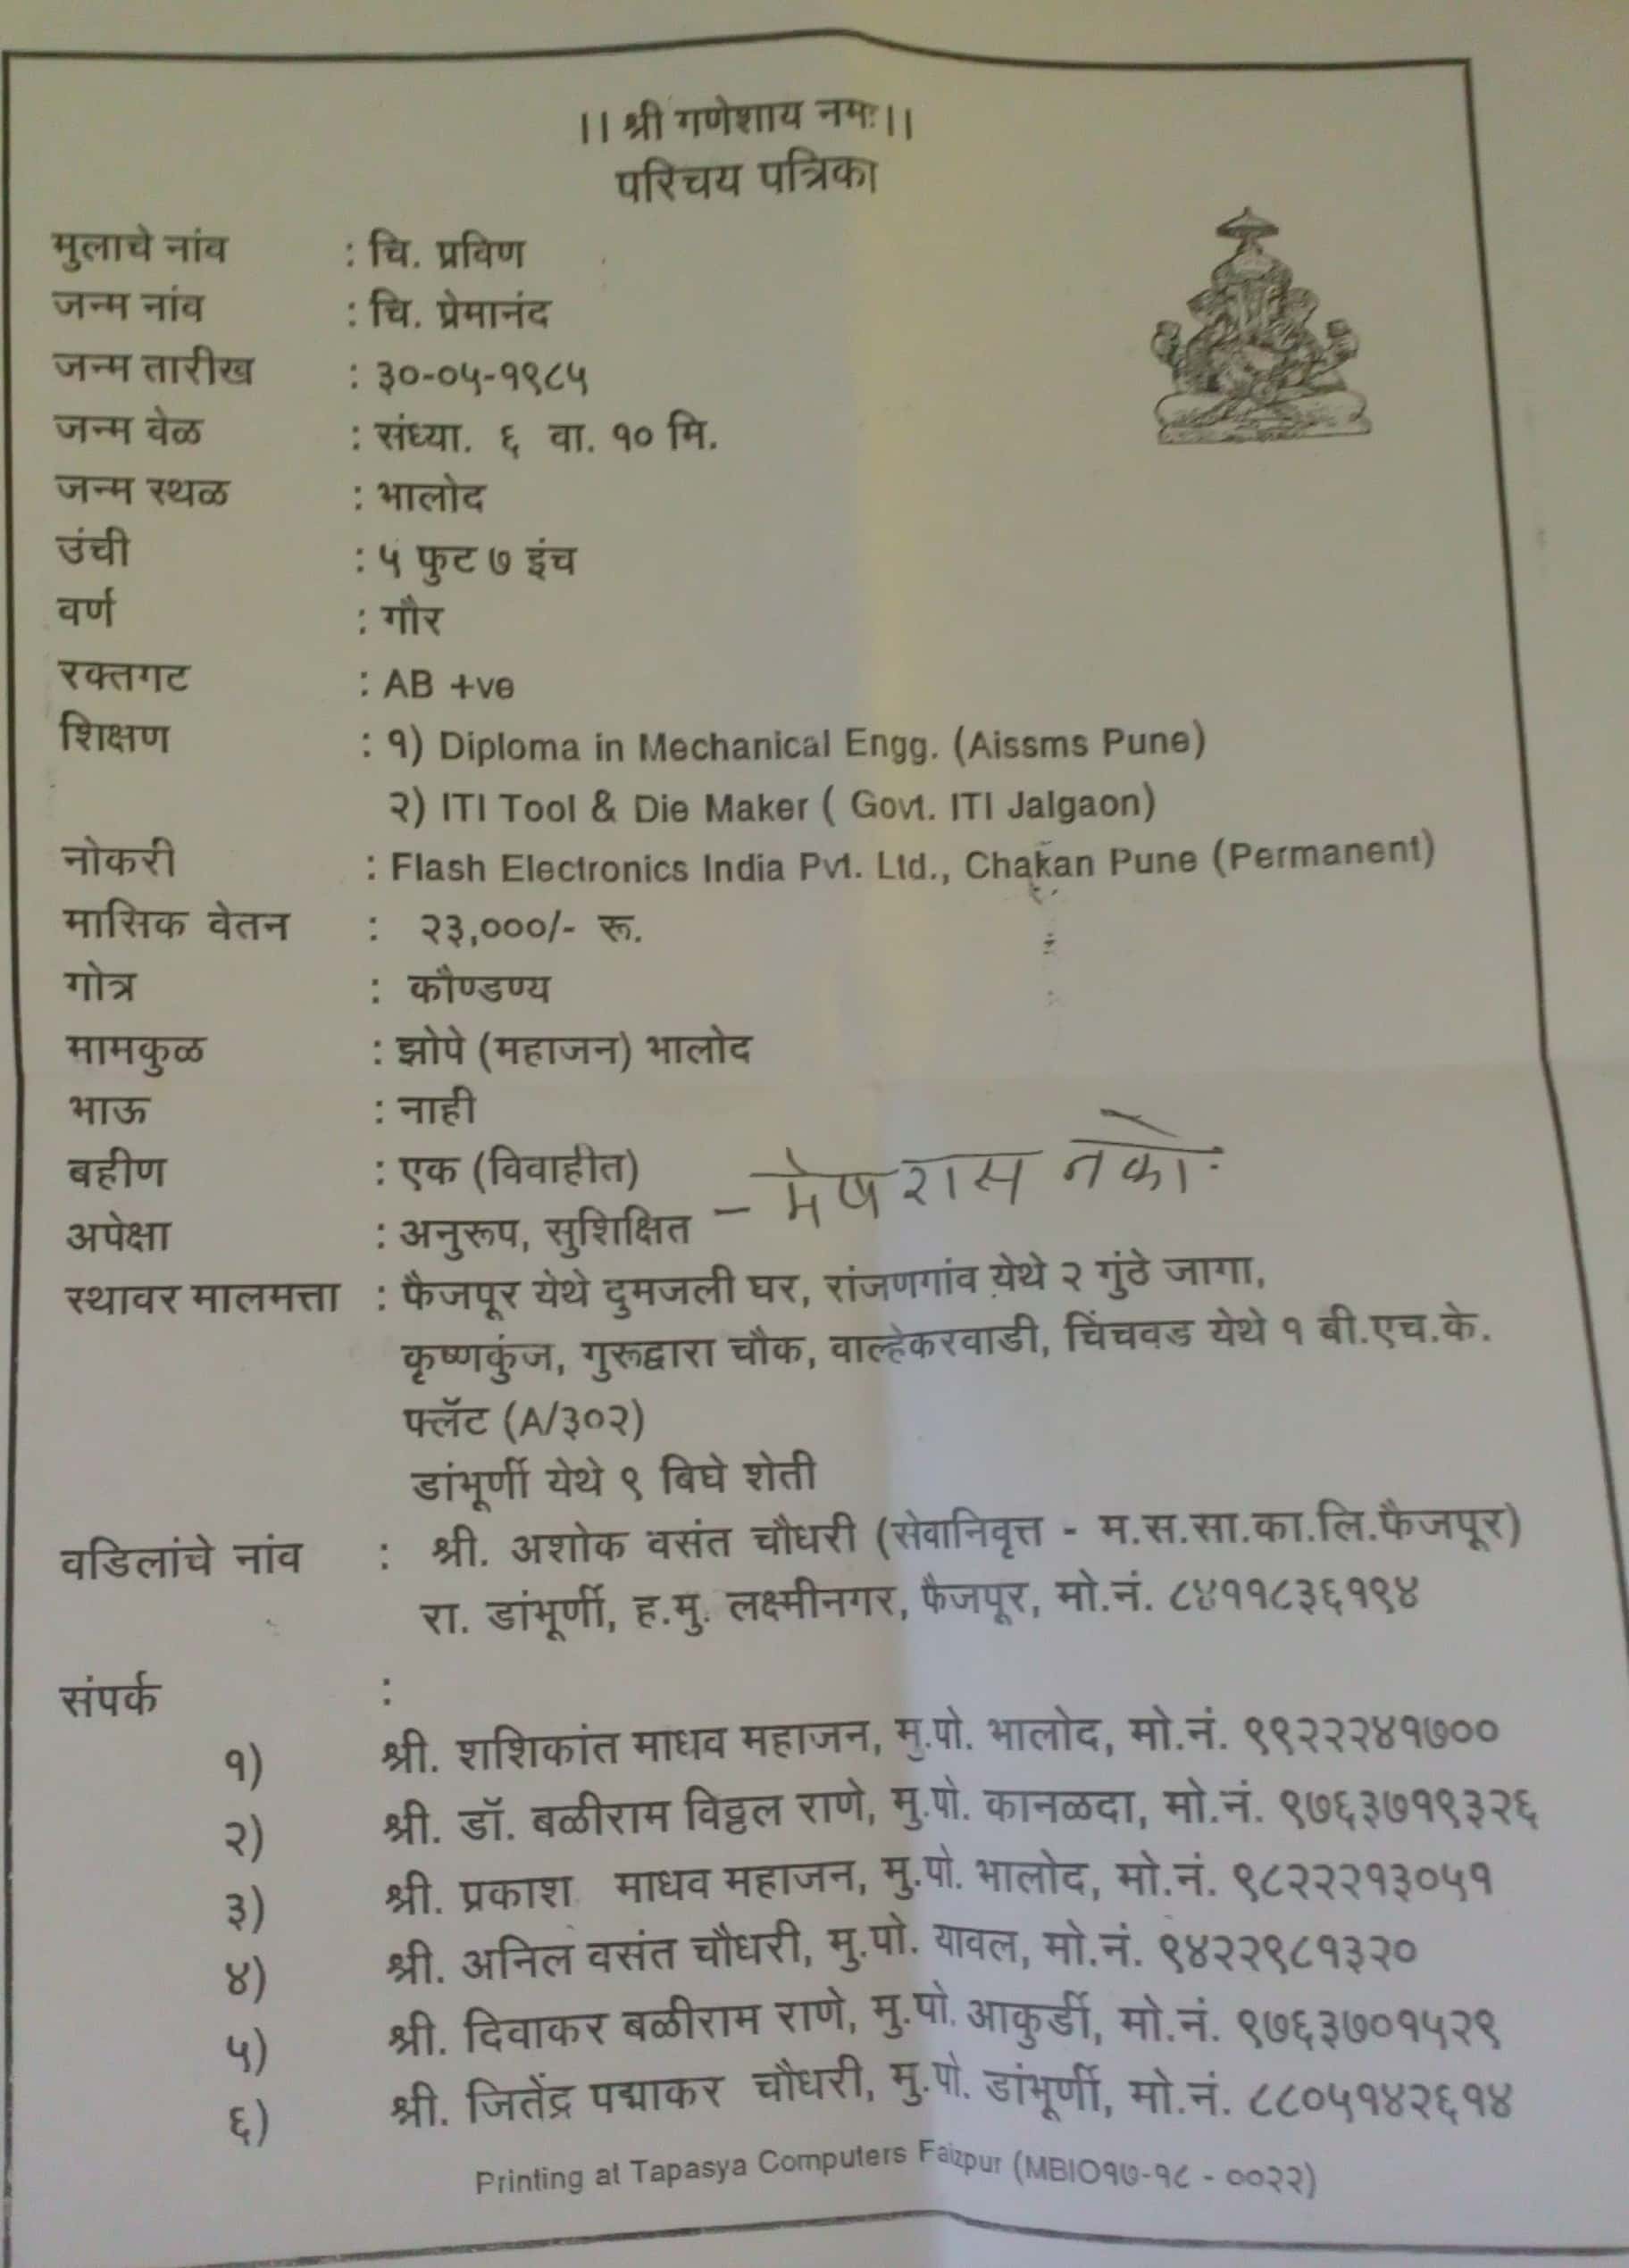 ।। श्री गणेशाय नमः।।
परिचय पत्रिका
मुलाचे नांव : चि. प्रविण
जन्म नांव : चि. प्रेमानंद
जन्म तारीख : ३०-०५-१९८५
जन्म वेळ : संध्या. ६ वा. १० मि.
जन्म स्थळ : भालोद
उंची : ५ फुट ७ इंच
वर्ण : गौर
रक्तगट : AB +ve
शिक्षण : १) Diploma in Mechanical Engg. (Aissms Pune)
२) ITI Tool & Die Maker ( Govt. ITI Jalgaon)
नोकरी : Flash Electronics India Pvt. Ltd., Chakan Pune (Permanent)
मासिक वेतन : २३,०००/- रू.
गोत्र : कौण्डण्य
मामकुळ : झोपे (महाजन) भालोद
भाऊ : नाही
बहीण : एक (विवाहीत)
अपेक्षा : अनुरूप, सुशिक्षित – मेष रास नको.
स्थावर मालमत्ता : फैजपूर येथे दुमजली घर, रांजणगांव येथे २ गुंठे जागा,
कृष्णकुंज, गुरूद्वारा चौक, वाल्हेकरवाडी, चिंचवड येथे १ बी.एच.के.
फ्लॅट (A/३०२)
डांभूर्णी येथे ९ बिघे शेती
वडिलांचे नांव : श्री. अशोक वसंत चौधरी (सेवानिवृत्त - म.स.सा.का.लि.फैजपूर)
रा. डांभूर्णी, ह.मु. लक्ष्मीनगर, फैजपूर, मो.नं. ८४११८३६१९४
संपर्क :
१) श्री. शशिकांत माधव महाजन, मु.पो. भालोद, मो.नं. ९९२२२४१७००
२) श्री. डॉ. बळीराम विठ्ठल राणे, मु.पो. कानळदा, मो.नं. ९७६३७१९३२६
३) श्री. प्रकाश माधव महाजन, मु.पो. भालोद, मो.नं. ९८२२२१३०५१
४) श्री. अनिल वसंत चौधरी, मु.पो. यावल, मो.नं. ९४२२९८१३२०
५) श्री. दिवाकर बळीराम राणे, मु.पो. आकुर्डी, मो.नं. ९७६३७०१५२९
६) श्री. जितेंद्र पद्माकर चौधरी, मु.पो. डांभूर्णी, मो.नं. ८८०५१४२६१४
Printing at Tapasya Computers Faizpur (MBIO१७-१८ - ००२२)